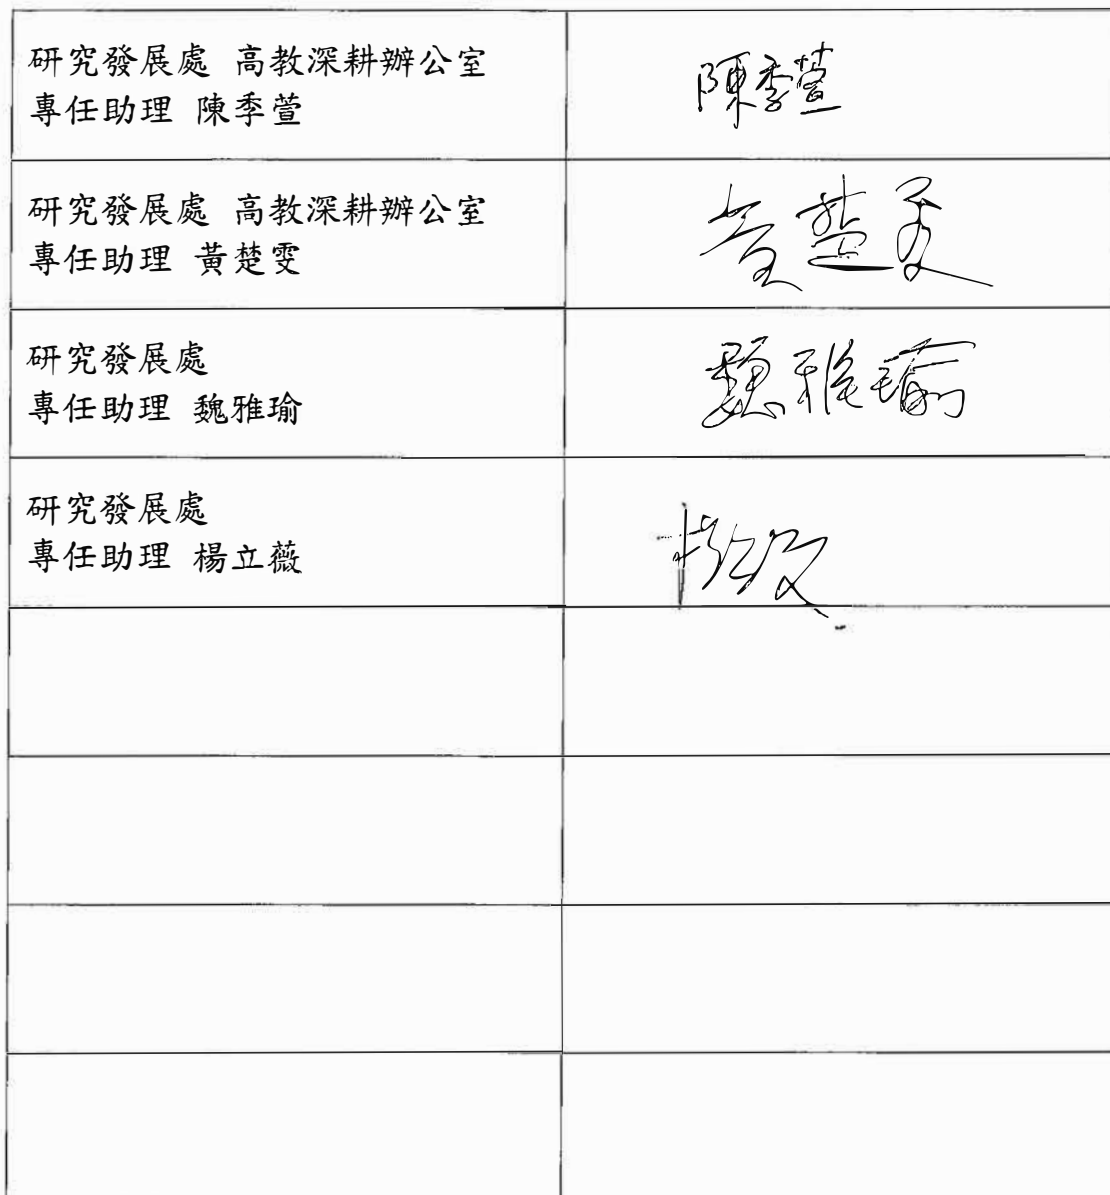 研究發展處 高教深耕辦公室
專任助理 陳季萱
陳季萱
研究發展處 高教深耕辦公室
專任助理 黃楚雯
黃楚雯
研究發展處
專任助理 魏雅瑜
魏雅瑜
研究發展處
專任助理 楊立薇